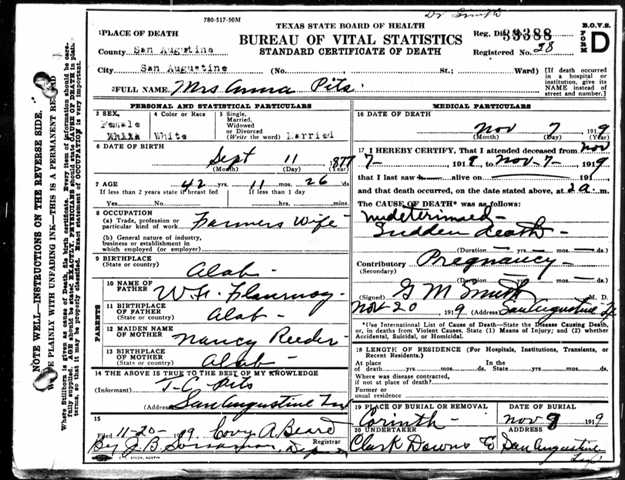 780-517-50M
Dr Smith
TEXAS STATE BOARD OF HEALTH
BUREAU OF VITAL STATISTICS
STANDARD CERTIFICATE OF DEATH
Reg. Dis. 38388
Registered No. 28
B.O.V.S.
FORM
D
1 PLACE OF DEATH
County San Augustine
City San Augustine (No. St.; Ward)
[If death occurred in a hospital or institution, give its NAME instead of street and number.]
FULL NAME Mrs Anna Pits
PERSONAL AND STATISTICAL PARTICULARS
3 SEX, Female White
4 Color or Race White
5 Single, Married, Widowed or Divorced (Write the word) Married
6 DATE OF BIRTH
Sept 11 1877
(Month) (Day) (Year)
7 AGE 42 yrs. 11 mos. 26 ds.
If less than 2 years state if breast fed If less than 1 day
Yes No hrs. min.
8 OCCUPATION
(a) Trade, profession or particular kind of work Farmers Wife
(b) General nature of industry, business or establishment in which employed (or employer)
9 BIRTHPLACE
(State or country) Alab
PARENTS
10 NAME OF FATHER W. H. Flournoy
11 BIRTHPLACE OF FATHER
(State or country) Alab
12 MAIDEN NAME OF MOTHER Nancy Reeder
13 BIRTHPLACE OF MOTHER
(State or country) Alab
14 THE ABOVE IS TRUE TO THE BEST OF MY KNOWLEDGE
(Informant) T. C. Pits
(Address) San Augustine Tex
15
Filed 11-20-19 Covy A Beard
Registrar
By J B
MEDICAL PARTICULARS
16 DATE OF DEATH
Nov 7 1919
(Month) (Day) (Year)
17 I HEREBY CERTIFY, That I attended deceased from Nov
7- 1919 to Nov-7- 1919
that I last saw alive on 191
and that death occurred, on the date stated above, at 2 a. m.
The CAUSE OF DEATH* was as follows:
undetermined
Sudden death
(Duration yrs. mos. ds.
Contributory Pregnancy
(Secondary)
(Duration) yrs. mos. ds.
(Signed) G M Smith M. D.
Nov-20 1919 (Address) San Augustine Tx
*Use International List of Cause of Death—State the Disease Causing Death, or, in deaths from Violent Causes, State (1) Means of Injury; and (2) whether Accidental, Suicidal, or Homicidal.
18 LENGTH OF RESIDENCE (For Hospitals, Institutions, Transients, or Recent Residents.)
At place of death yrs. mos. ds. State yrs. mos. ds.
Where was disease contracted, if not at place of death?
Former or usual residence
19 PLACE OF BURIAL OR REMOVAL DATE OF BURIAL
Corinth Nov 8 1919
20 UNDERTAKER ADDRESS
Clark Downs Co San Augustine
Tex
NOTE WELL—INSTRUCTIONS ON THE REVERSE SIDE.
WRITE PLAINLY WITH UNFADING INK—THIS IS A PERMANENT RECORD